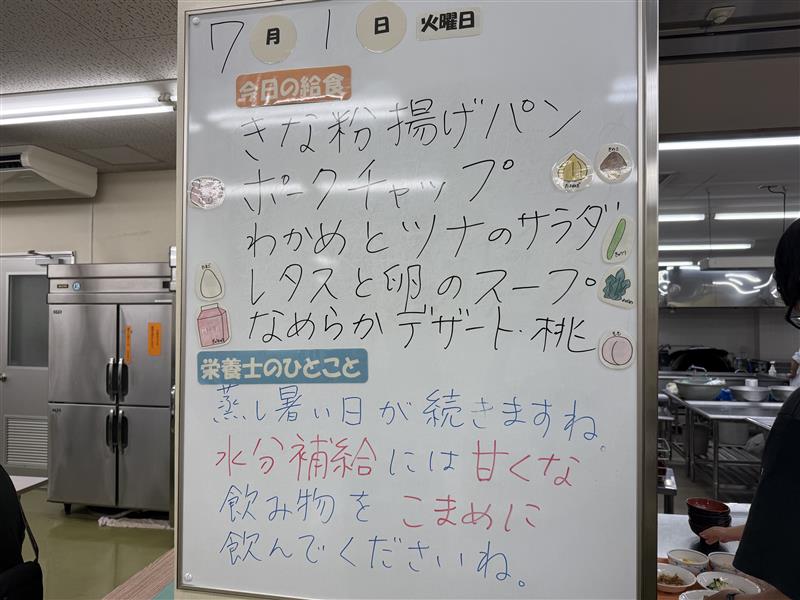 7月1日 火曜日
今月の給食
きな粉揚げパン
ポークチャップ
わかめとツナのサラダ
レタスと卵のスープ
なめらかデザート・桃
栄養士のひとこと
蒸し暑い日が続きますね。
水分補給には甘くな
飲み物をこまめに
飲んでくださいね。